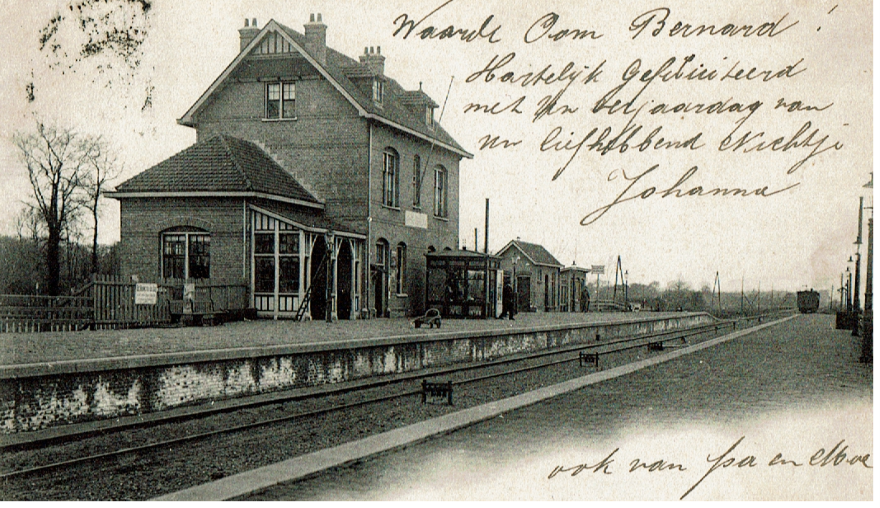 Waarde Oom Bernard!
Hartelijk Gefeliciteerd
met Uw verjaardag van
Uw liefhebbend Nichtje
Johanna
ook van Pa en Moe